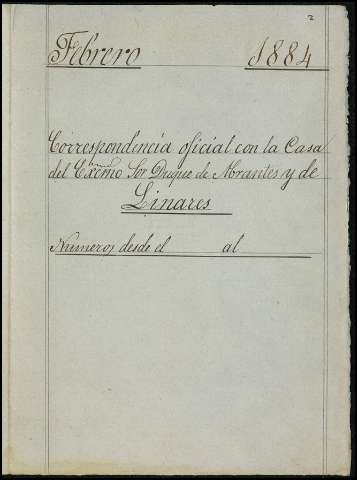 2
Febrero 1884
Correspondencia oficial con la Casa
del Excmo Sor Duque de Abrantes y de
Linares
Numeros desde el al